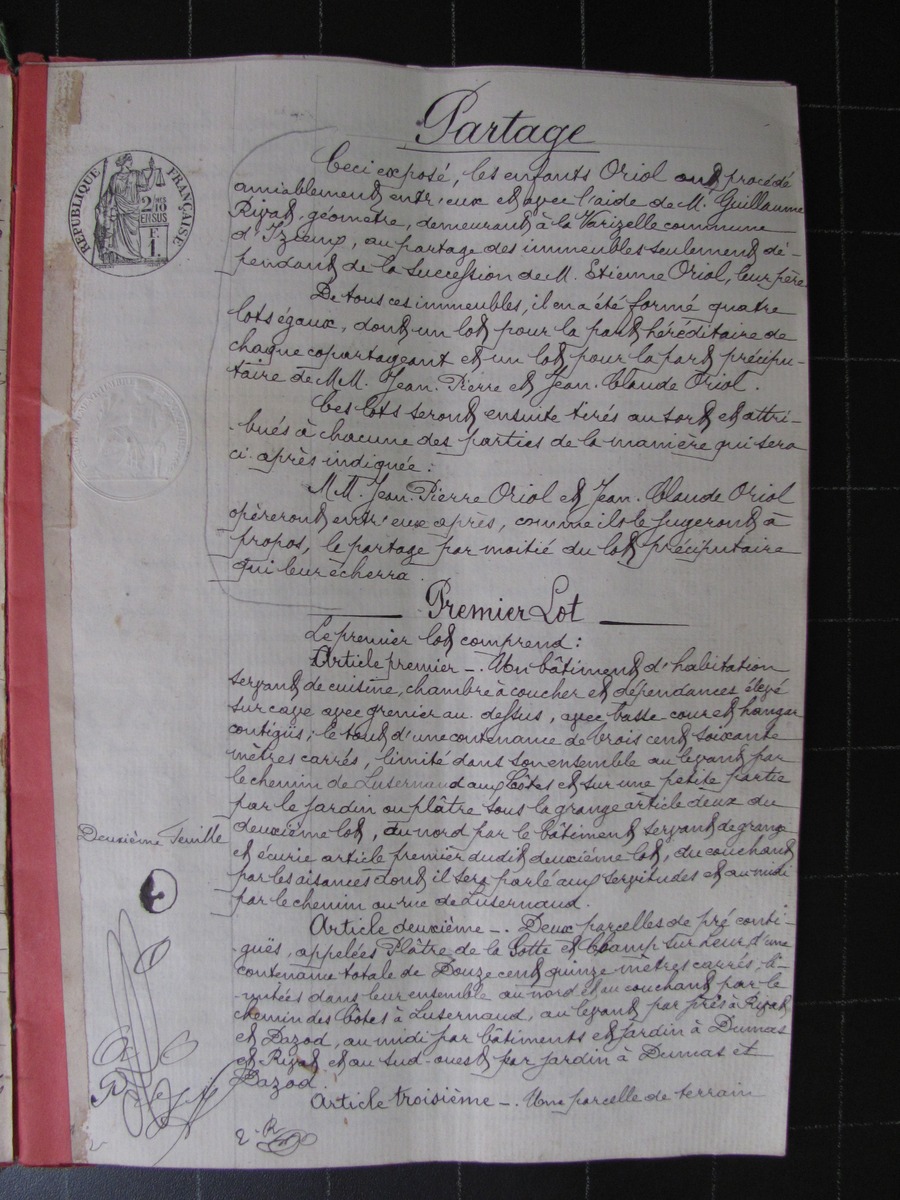 Partage
RÉPUBLIQUE FRANÇAISE
2/10 EN SUS
F. 1.
Ceci exposé, les enfants Oriol ont procédé
amiablement entr'eux et avec l'aide de M. Guillaume
Rizat, géomètre, demeurant à la Varizelle commune
d'Izieux, au partage des immeubles seulement dé-
pendant de la succession de M. Etienne Oriol, leur père
De tous ces immeubles, il en a été formé quatre
lots égaux, dont un lot pour la part héréditaire de
chaque copartageant et un lot pour la part précipu-
taire de MM. Jean-Pierre et Jean-Claude Oriol.
Ces lots seront ensuite tirés au sort et attri-
-bués à chacune des parties de la manière qui sera
ci-après indiquée :
MM. Jean-Pierre Oriol et Jean-Claude Oriol
opèreront entr'eux après, comme ils le jugeront à
propos, le partage par moitié du lot préciputaire
qui leur écherra.
Premier Lot
Le premier lot comprend :
Article premier -. Un bâtiment d'habitation
servant de cuisine, chambre à coucher et dépendances élevé
sur cave avec grenier au-dessus, avec basse cour et hangar
contigüs ; le tout d'une contenance de trois cent soixante
mètres carrés, limité dans son ensemble au levant par
le chemin de Lusernaud aux Côtes et sur une petite partie
par le jardin ou plâtre sous la grange article deux du
deuxième lot, au nord par le bâtiment servant de grange
et écurie article premier dudit deuxième lot, du couchant
par les aisances dont il sera parlé aux servitudes et au midi
par le chemin ou rue de Lusernaud.
Deuxième Feuille
Article deuxième -. Deux parcelles de pré conti-
-guës, appelées Plâtre de la Gotte et Champ sur d'une
contenance totale de Douze cent quinze mètres carrés, li-
-mitées dans leur ensemble au nord et au couchant par le
chemin des Côtes à Lusernaud, au levant par prés à Rizat
et Dazod, au midi par bâtiments et jardin à Dumas
et Rizat et au sud-ouest par jardin à Dumas et
Dazod.
Article troisième -. Une parcelle de terrain